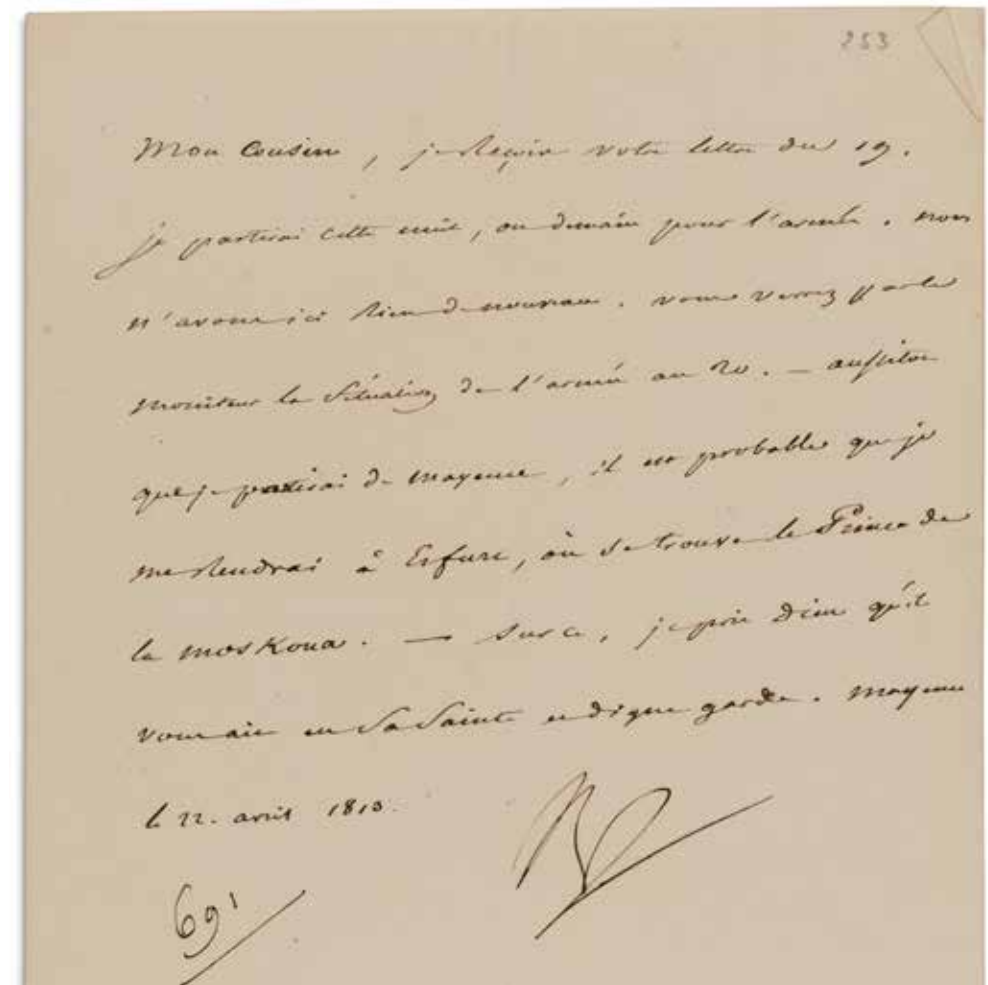 253
Mon Cousin, je Reçois votre lettre du 19.
je partirai cette nuit, ou demain pour l'armée. nous
n'avons ici Rien de nouveau. vous verrez par le
moniteur la Situation de l'armée au 20. — aussitôt
que je partirai de mayence, il est probable que je
me Rendrai à Erfurt, où se trouve le Prince de
la mosKoua. — Sur ce, je prie Dieu qu'il
vous ait en Sa Sainte et digne garde. mayence
le 22. avril 1813.
691